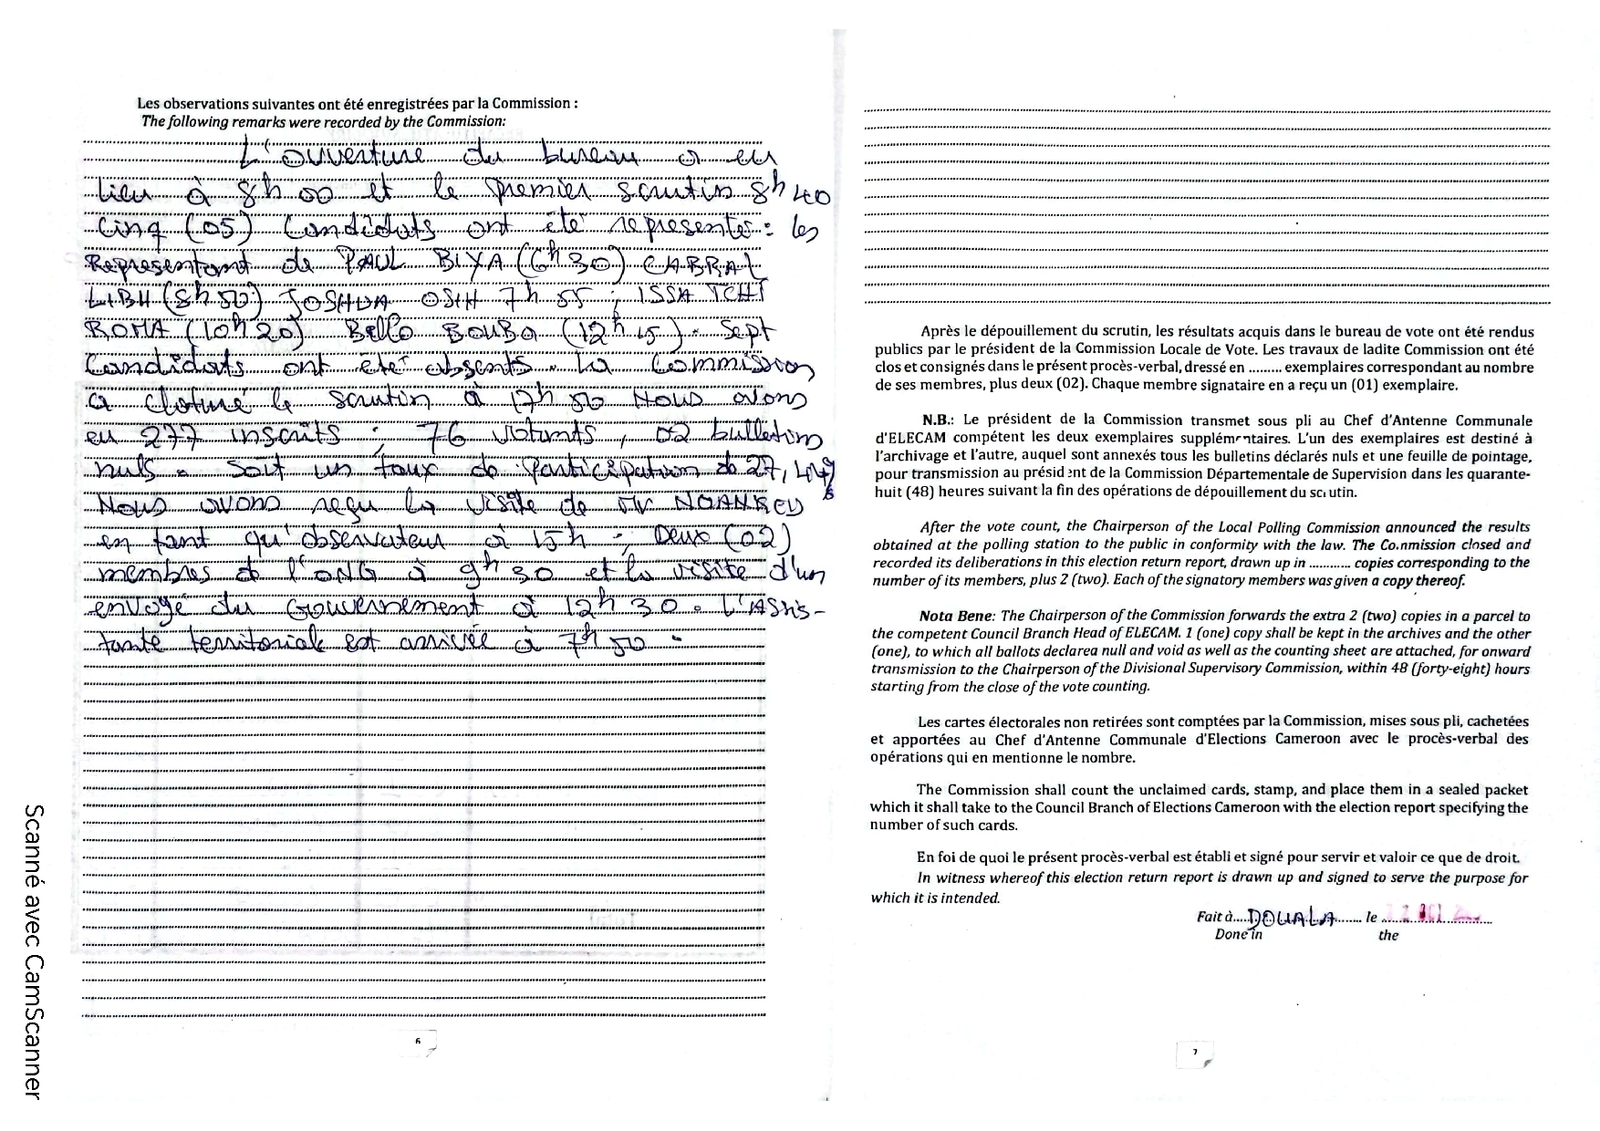 Les observations suivantes ont été enregistrées par la Commission :
The following remarks were recorded by the Commission:
L'ouverture du bureau a eu
lieu à 8h 00 et le premier scrutin 8h 40
Cinq (05) Candidats ont été representés : les
Representant de PAUL BIYA (6h 30) CABRAL
LIBII (8h 50) JOSHUA OSIH 7h 55 ; ISSA TCHI
ROMA (10h 20) Bello BOUBA (12h 15). Sept
Candidats ont été absents. La Commission
a cloturé le scrutin à 17h 50 Nous avons
eu 277 inscrits ; 76 votants, 02 bulletins
nuls. Soit un taux de participation de 27,
Nous avons reçu la visite de
en tant qu'observateur à 15h ; Deux (02)
membres de l'ONG à 9h 30 et la visite d'un
envoyé du Gouvernement à 12h 30. L'Assis-
tante territoriale est arrivée à 7h 50.
6
Après le dépouillement du scrutin, les résultats acquis dans le bureau de vote ont été rendus
publics par le président de la Commission Locale de Vote. Les travaux de ladite Commission ont été
clos et consignés dans le présent procès-verbal, dressé en ......... exemplaires correspondant au nombre
de ses membres, plus deux (02). Chaque membre signataire en a reçu un (01) exemplaire.
N.B.: Le président de la Commission transmet sous pli au Chef d'Antenne Communale
d'ELECAM compétent les deux exemplaires supplémentaires. L'un des exemplaires est destiné à
l'archivage et l'autre, auquel sont annexés tous les bulletins déclarés nuls et une feuille de pointage,
pour transmission au président de la Commission Départementale de Supervision dans les quarante-
huit (48) heures suivant la fin des opérations de dépouillement du scrutin.
After the vote count, the Chairperson of the Local Polling Commission announced the results
obtained at the polling station to the public in conformity with the law. The Commission closed and
recorded its deliberations in this election return report, drawn up in ........... copies corresponding to the
number of its members, plus 2 (two). Each of the signatory members was given a copy thereof.
Nota Bene: The Chairperson of the Commission forwards the extra 2 (two) copies in a parcel to
the competent Council Branch Head of ELECAM. 1 (one) copy shall be kept in the archives and the other
(one), to which all ballots declarea null and void as well as the counting sheet are attached, for onward
transmission to the Chairperson of the Divisional Supervisory Commission, within 48 (forty-eight) hours
starting from the close of the vote counting.
Les cartes électorales non retirées sont comptées par la Commission, mises sous pli, cachetées
et apportées au Chef d'Antenne Communale d'Elections Cameroon avec le procès-verbal des
opérations qui en mentionne le nombre.
The Commission shall count the unclaimed cards, stamp, and place them in a sealed packet
which it shall take to the Council Branch of Elections Cameroon with the election report specifying the
number of such cards.
En foi de quoi le présent procès-verbal est établi et signé pour servir et valoir ce que de droit.
In witness whereof this election return report is drawn up and signed to serve the purpose for
which it is intended.
Fait à....DOUALA...... le
Done in the
7
Scanné avec CamScanner